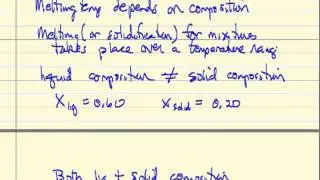 Melting temp depends on composition
Melting (or solidification) for mixtures
takes place over a temperature rang
liquid composition ≠ solid composition
X liq = 0.60 X solid = 0.20
Both liq + solid composition